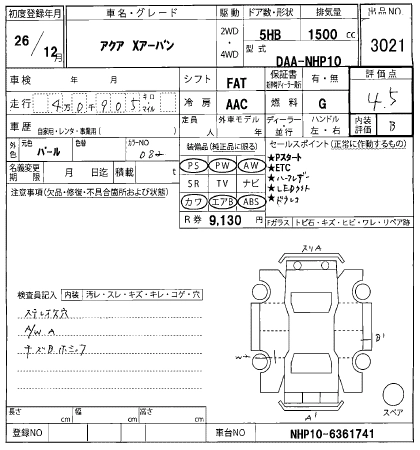 初度登録年月 車名・グレード 駆動 ドア数・形状 排気量 出品NO
26/12月 アクア Xアーバン 2WD・4WD 5HB 1500 cc 3021
型式 DAA-NHP10
車検 年 月 シフト FAT 保証書 有・無 評価点
走行 4万0千905 キロ・マイル 冷房 AAC 燃料 G 4.5
車歴 自家用・レンタ・事業用( ) 定員 人 外車モデル 年 ディーラー・並行 ハンドル 左・右 内装評価 B
外色 元色 パール 色替 カラーNO 082
装備品(純正品に限る) セールスポイント(正常に作動するもの)
名義変更期限 月 日迄 積載 t
PS PW AW
SR TV ナビ
カワ エアB ABS
★Pスタート
★ETC
★ハーフレザー
★LEDライト
★ドラレコ
注意事項(欠品・修復・不具合箇所および状態)
R券 9,130 円
Fガラス トビ石・キズ・ヒビ・ワレ・リペア跡
スリA
検査員記入 内装 汚レ・スレ・キズ・キレ・コゲ・穴
ステレオ穴
A/W A
キズB
B'
W2
A'
スペア
長さ cm 幅 cm 高さ cm
登録NO 車台NO NHP10-6361741